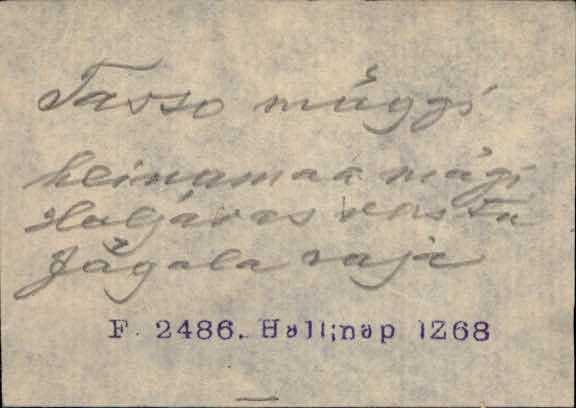 Tasso mäggi
heinamaa mägi
Haljāvas vasta
Jägala raja
F. 2486. Hallinap 1268